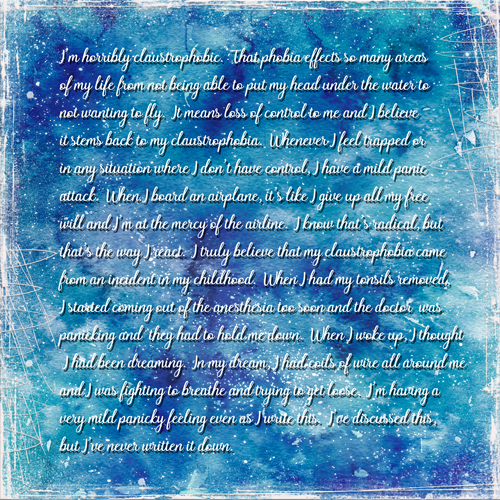 I'm horribly claustrophobic. That phobia effects so many areas
of my life from not being able to put my head under the water to
not wanting to fly. It means loss of control to me and I believe
it stems back to my claustrophobia. Whenever I feel trapped or
in any situation where I don't have control, I have a mild panic
attack. When I board an airplane, it's like I give up all my free
will and I'm at the mercy of the airline. I know that's radical, but
that's the way I react. I truly believe that my claustrophobia came
from an incident in my childhood. When I had my tonsils removed,
I started coming out of the anesthesia too soon and the doctor was
panicking and they had to hold me down. When I woke up, I thought
I had been dreaming. In my dream, I had coils of wire all around me
and I was fighting to breathe and trying to get loose. I'm having a
very mild panicky feeling even as I write this. I've discussed this,
but I've never written it down.